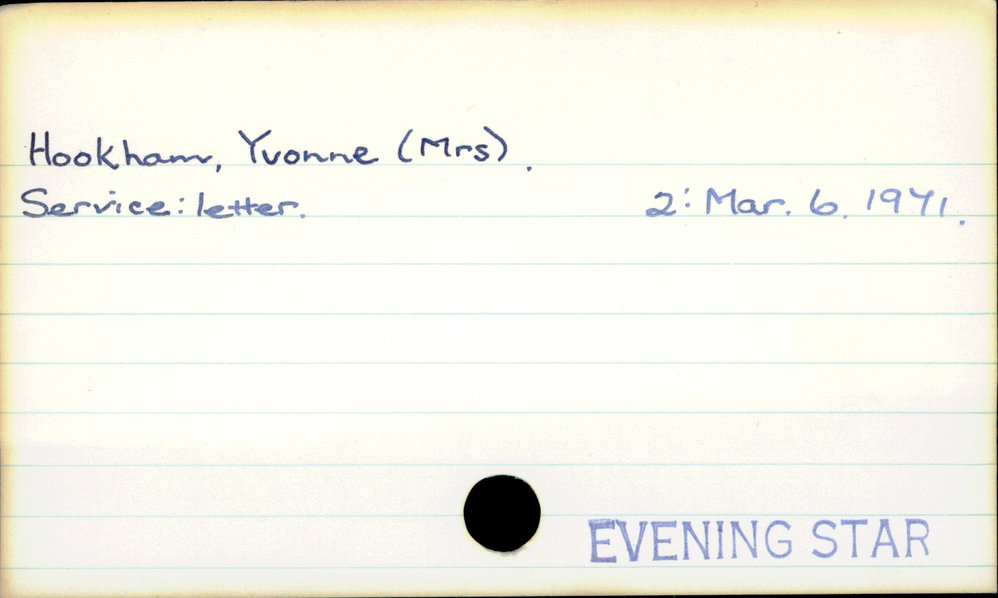 Hookham, Yvonne (Mrs).
Service: letter. 2: Mar. 6. 1971.
EVENING STAR